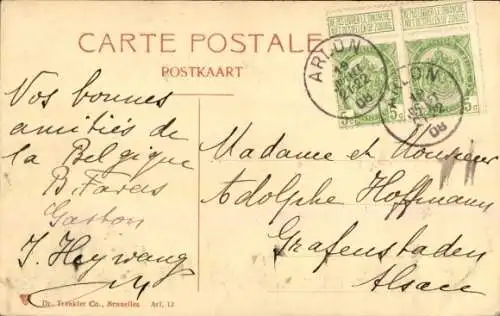 CARTE POSTALE
POSTKAART
NE PAS LIVRER LE DIMANCHE
NIET BESTELLEN OP ZONDAG
NE PAS LIVRER LE DIMANCHE
NIET BESTELLEN OP ZONDAG
ARLON
21-22
08
ARLON
08
5c
5c
5c
Vos bonnes
amitiés de
la Belgique
B. Faras
Gaston
J. Heywang
Madame et Monsieur
Adolphe Hoffmann
Grafenstaden
Alsace
Dr. Trenkler Co., Bruxelles Arl. 12